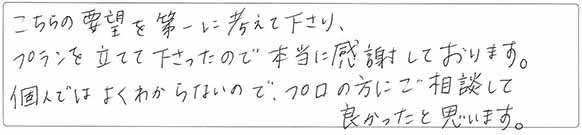 こちらの要望を第一に考えて下さり、
プランを立てて下さったので本当に感謝しております。
個人ではよくわからないので、プロの方にご相談して
良かったと思います。